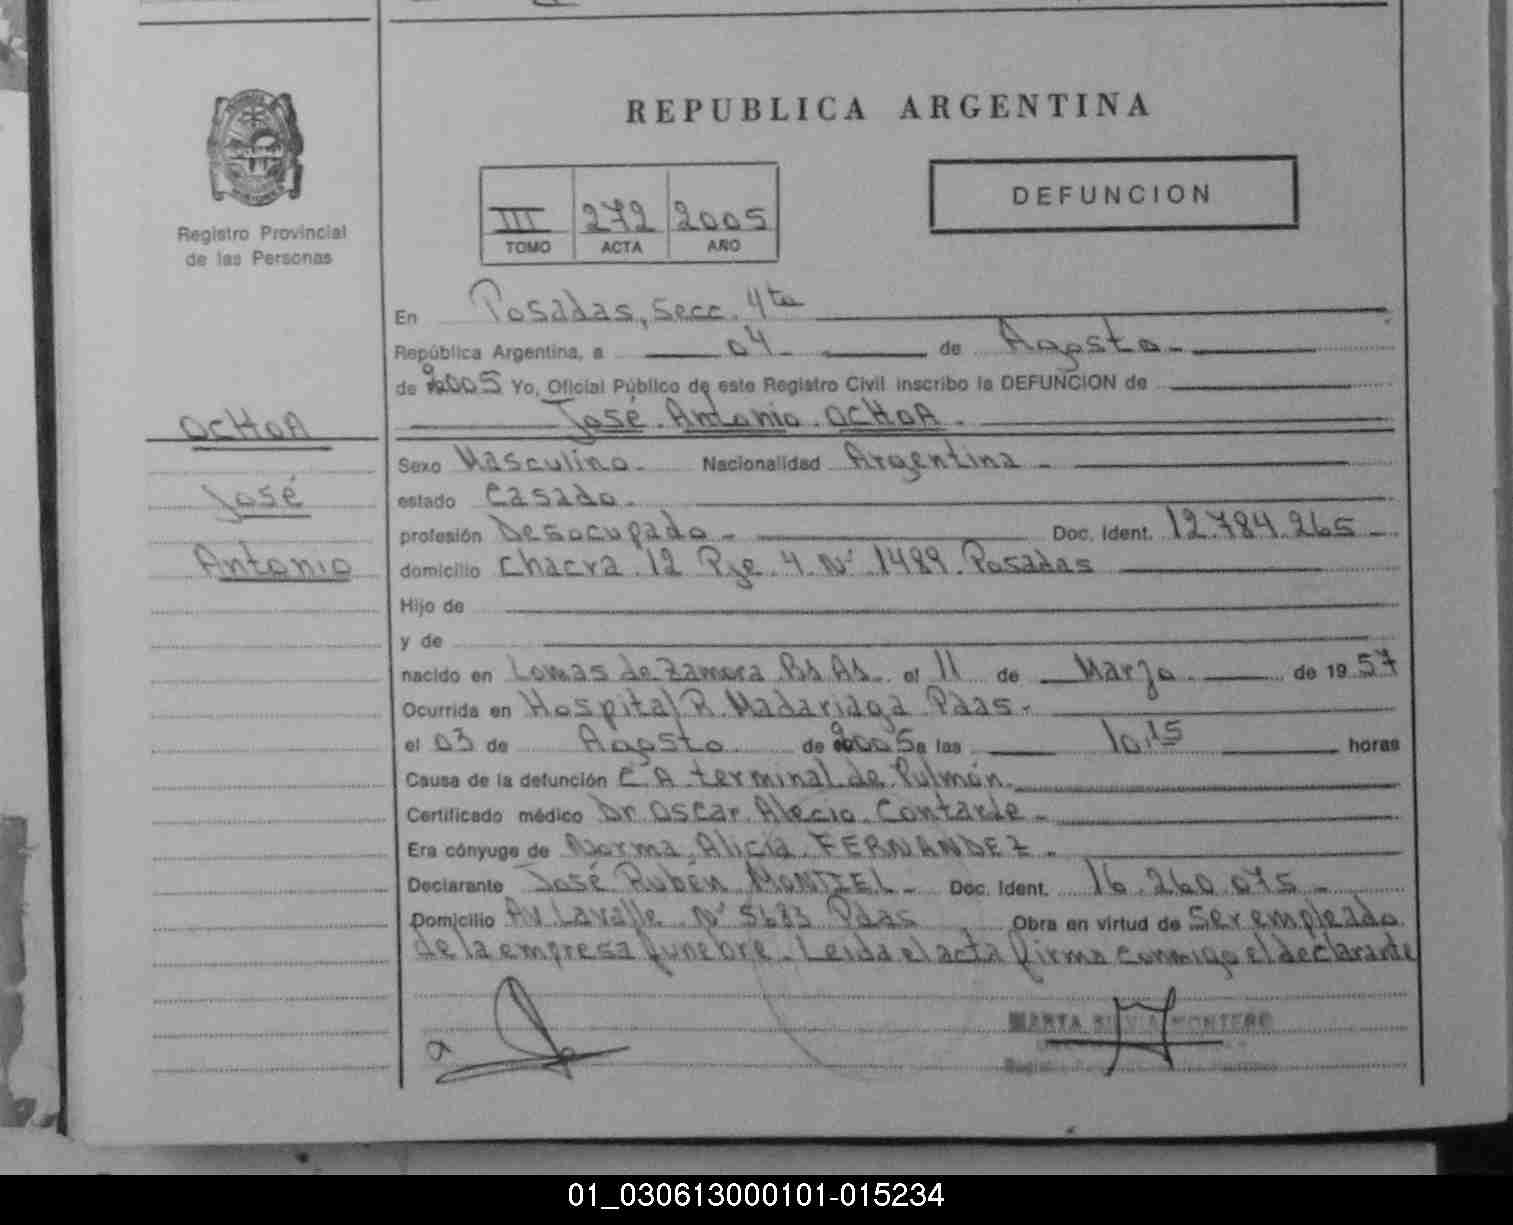 REPUBLICA ARGENTINA
DEFUNCION
III 272 2005
TOMO ACTA AÑO
Registro Provincial
de las Personas
En Posadas, Secc. 4ta
República Argentina, a 04 de Agosto
de 2005 Yo, Oficial Público de este Registro Civil inscribo la DEFUNCION de
José Antonio OCHOA
OCHOA
José
Antonio
Sexo Masculino Nacionalidad Argentina
estado Casado
profesión Desocupado Doc. Ident. 12.784.265
domicilio Chacra 12 Pje 4 Nº 1489 Posadas
Hijo de
y de
nacido en Lomas de Zamora Bs As. el 11 de Marzo de 1957
Ocurrida en Hospital R. Madariaga Pdas
el 03 de Agosto de 2005 a las 10,15 horas
Causa de la defunción C.A. terminal de Pulmón
Certificado médico Dr. Oscar Alecio Contarde
Era cónyuge de Norma Alicia FERNANDEZ
Declarante José Ruben MONTIEL Doc. Ident. 16.260.075
Domicilio Av. Lavalle Nº 5683 Pdas Obra en virtud de Ser empleado
de la empresa funebre. Leida el acta firma conmigo el declarante
MARTA SILVIA MONTERO
01_030613000101-015234